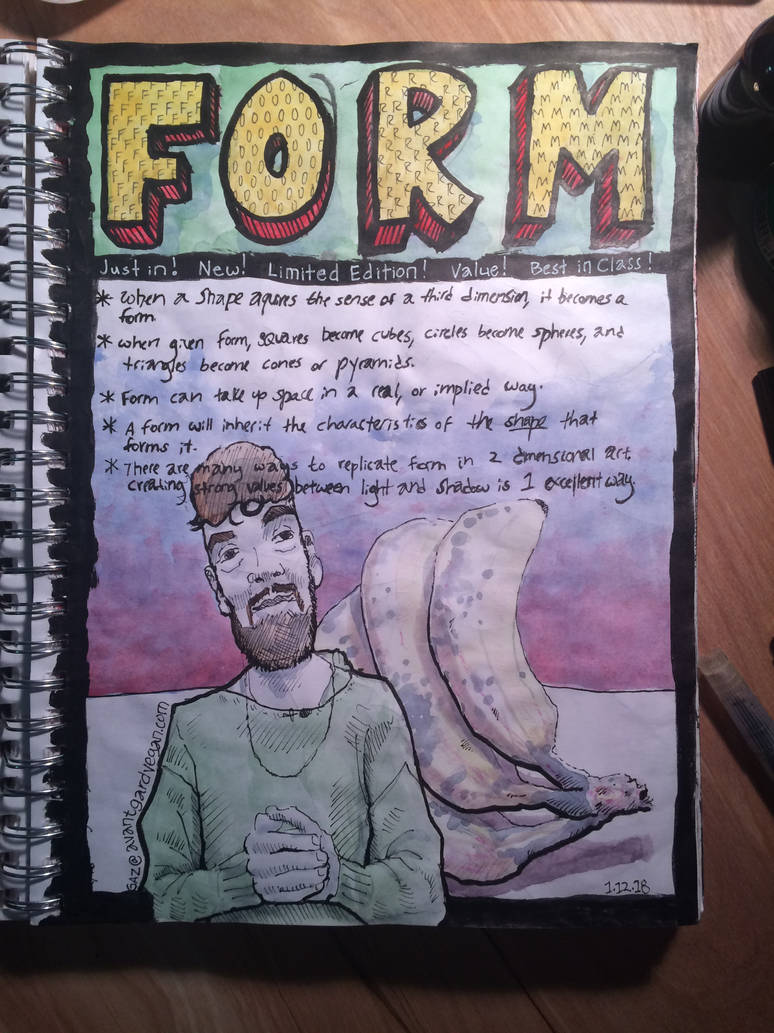 FORM
Just in! New! Limited Edition! Value! Best in Class!
* When a shape aquires the sense of a third dimension, it becomes a
form.
* When given form, squares become cubes, circles become spheres, and
triangles become cones or pyramids.
* Form can take up space in a real, or implied way.
* A form will inherit the characteristics of the shape that
forms it.
* There are many ways to replicate form in 2 dimensional art.
creating strong values between light and shadow is 1 excellent way.
GAZ@avantgardvegan.com
1.12.18